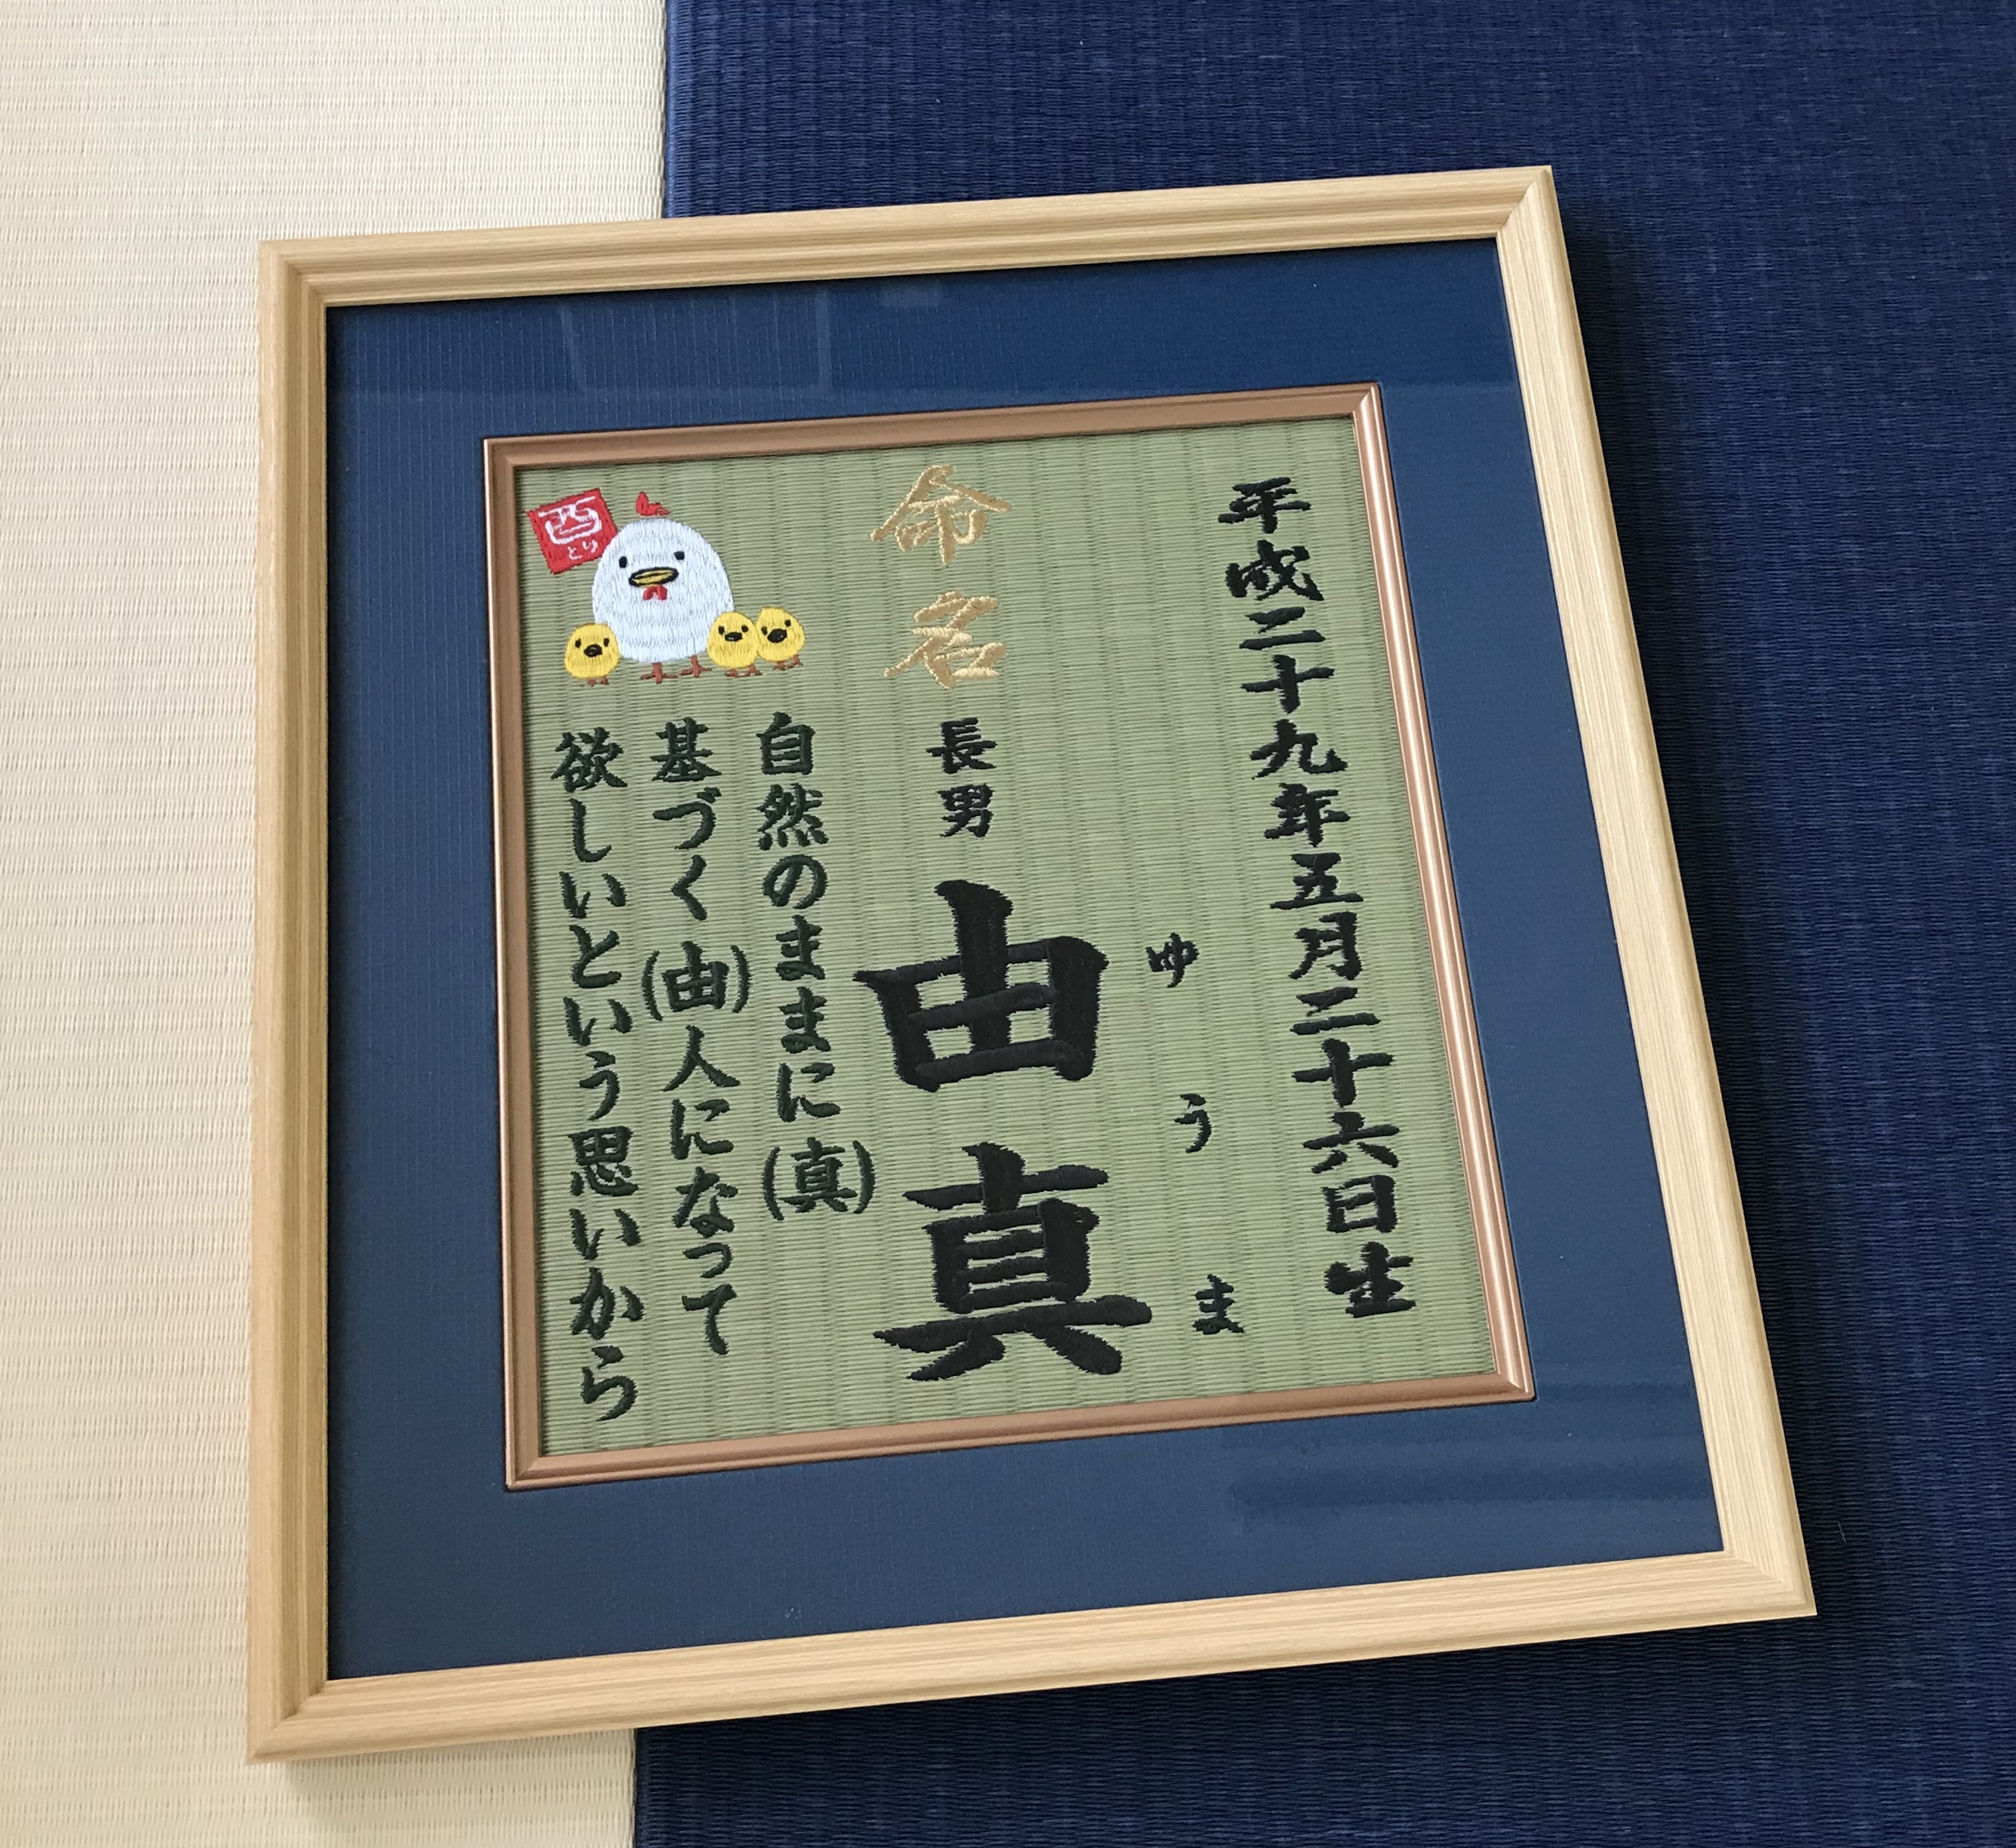 平成二十九年五月二十六日生
ゆうま
命名
長男
由真
自然のままに(真)
基づく(由)人になって
欲しいという思いから
酉
とり